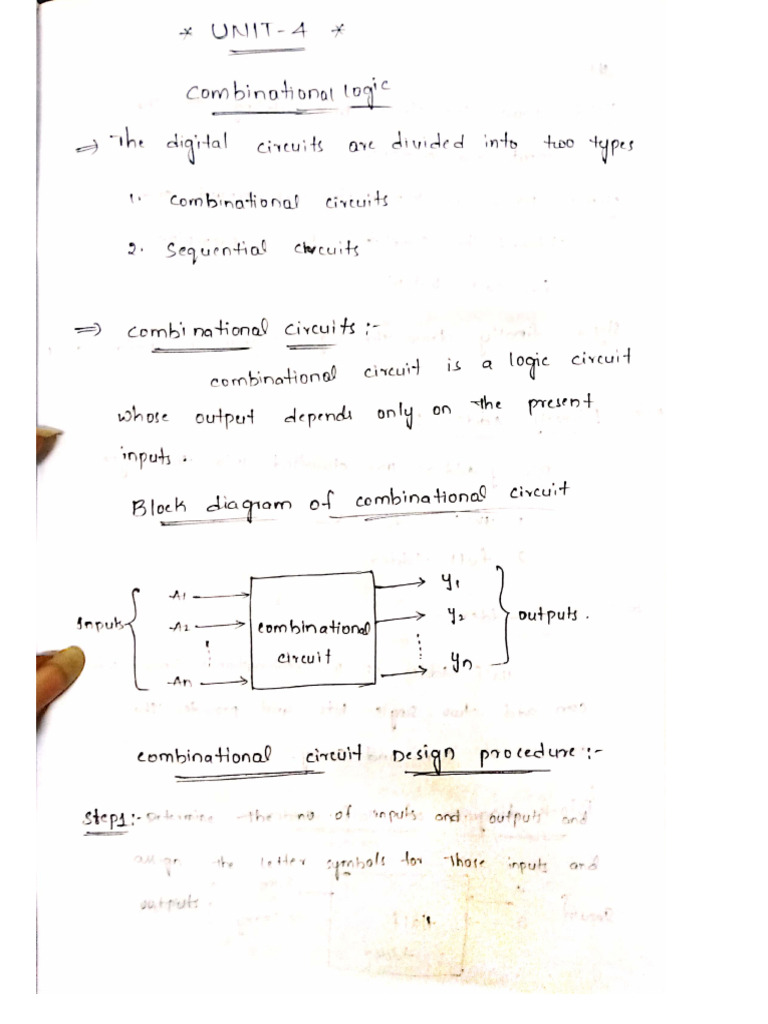 * UNIT-4 *
Combinational Logic
⇒ The digital circuits are divided into two types
1. Combinational circuits
2. Sequential circuits
⇒ Combinational circuits:-
combinational circuit is a logic circuit
whose output depends only on the present
inputs.
Block diagram of combinational circuit
Inputs
A1
A2
An
combinational
circuit
y1
y2
yn
outputs.
combinational circuit Design procedure:-
Step1:- Determine the no of inputs and outputs and
assign the letter symbols for those inputs and
outputs.